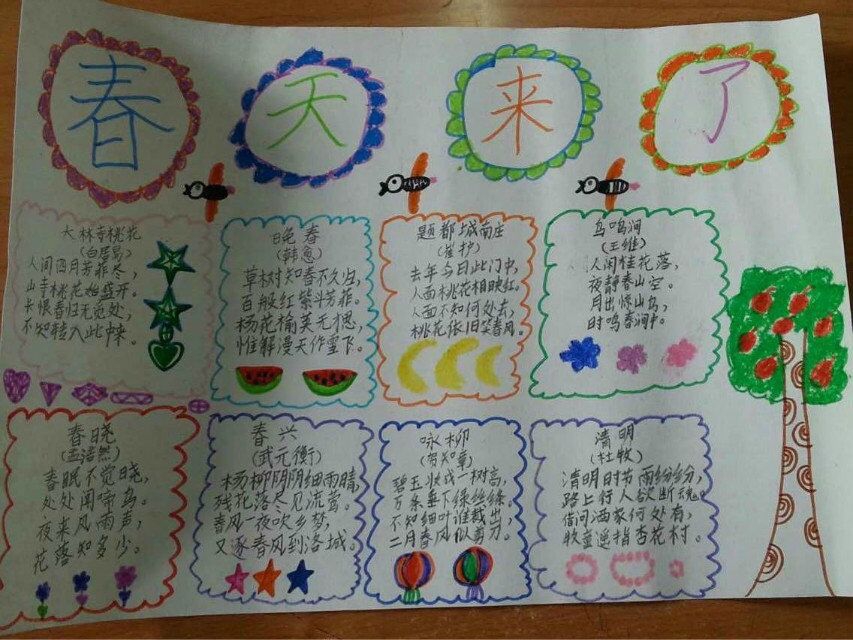 春天来了
大林寺桃花
(白居易)
人间四月芳菲尽，
山寺桃花始盛开。
长恨春归无觅处，
不知转入此中来。
晚春
(韩愈)
草树知春不久归，
百般红紫斗芳菲。
杨花榆荚无才思，
惟解漫天作雪飞。
题都城南庄
(崔护)
去年今日此门中，
人面桃花相映红。
人面不知何处去，
桃花依旧笑春风。
鸟鸣涧
(王维)
人闲桂花落，
夜静春山空。
月出惊山鸟，
时鸣春涧中。
春晓
(孟浩然)
春眠不觉晓，
处处闻啼鸟。
夜来风雨声，
花落知多少。
春兴
(武元衡)
杨柳阴阴细雨晴，
残花落尽见流莺。
春风一夜吹乡梦，
又逐春风到洛城。
咏柳
(贺知章)
碧玉妆成一树高，
万条垂下绿丝绦。
不知细叶谁裁出，
二月春风似剪刀。
清明
(杜牧)
清明时节雨纷纷，
路上行人欲断魂。
借问酒家何处有，
牧童遥指杏花村。